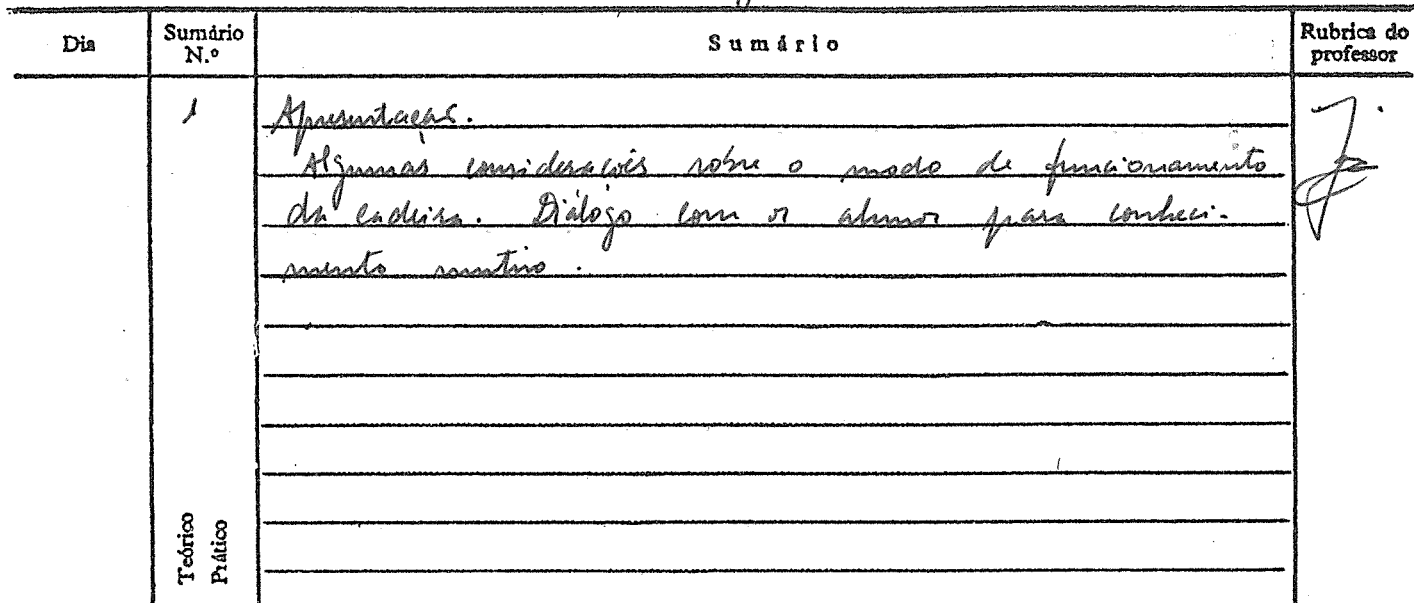 Dia
Sumário
N.º
Sumário
Rubrica do
professor
1
Apresentação.
Algumas considerações sobre o modo de funcionamento
da cadeira. Diálogo com os alunos para conheci-
mento mútuo.
Teórico
Prático